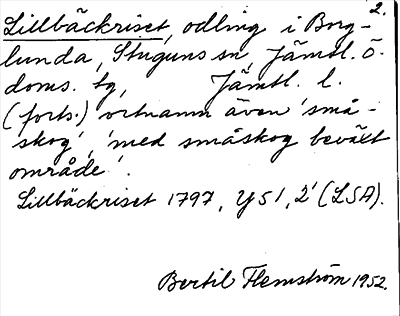 2.
Lillbäckriset, odling i Borg-
lunda, Stuguns sn, Jämtl. ö.
doms. tg, Jämtl. l.
(forts.) ortnamn även 'små-
skog', 'med småskog beväxt
område'.
Lillbäckriset 1797, Y51, 2' (LSA).
Bertil Flemström 1952.